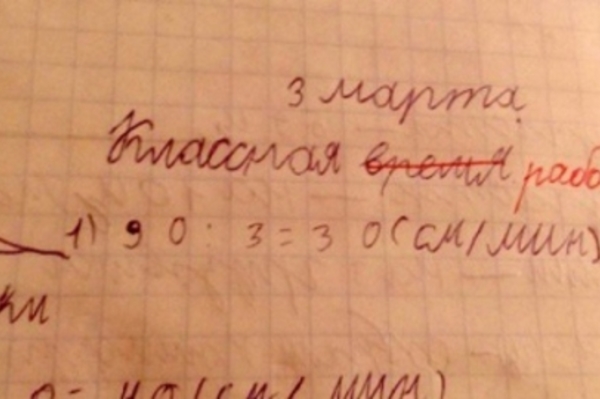 3 марта.
Классная время рабо
1) 90 : 3 = 30 (см/мин)
ки
0 = 40 (см/мин)